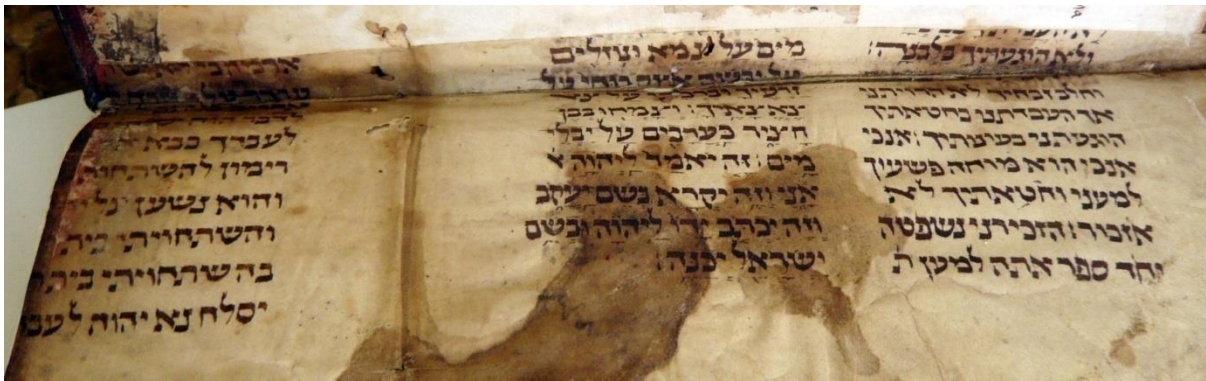 ולא הוגעתיך בלבנה:
וחלב זבחיך לא הרויתני
אך העבדתני בחטאתיך
הוגעתני בעונתיך: אנכי
אנכי הוא מוחה פשעיך
למעני וחטאתיך לא
אזכור: הזכירני נשפטה
יחד ספר אתה למען ת
מים על צמא ונוזלים
על יבשה אצק רוחי על
צאצאיך: וצמחו בבין
חציר כערבים על יבלי
מים: זה יאמר ליהוה א
אני וזה יקרא בשם יעקב
וזה יכתב ידו ליהוה ובשם
ישראל יכנה:
לעבדך בבא
רימון להשתחות
והוא נשען על
והשתחויתי בית
בהשתחויתי בית
יסלח נא יהוה לעבד